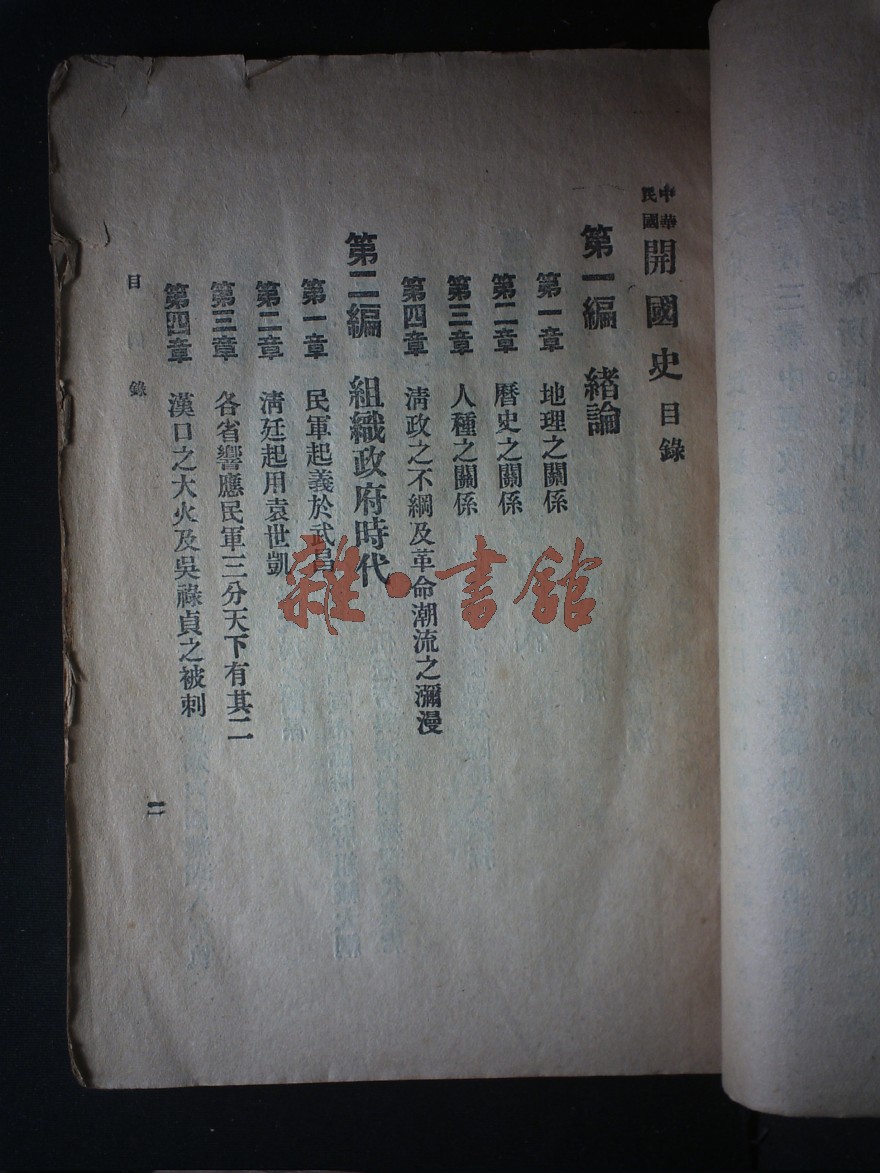 中華民國開國史目錄
第一編 緒論
第一章 地理之關係
第二章 曆史之關係
第三章 人種之關係
第四章 淸政之不綱及革命潮流之瀰漫
第二編 組織政府時代
第一章 民軍起義於武昌
第二章 淸廷起用袁世凱
第三章 各省響應民軍三分天下有其二
第四章 漢口之大火及吳祿貞之被刺
目錄
雜·書館